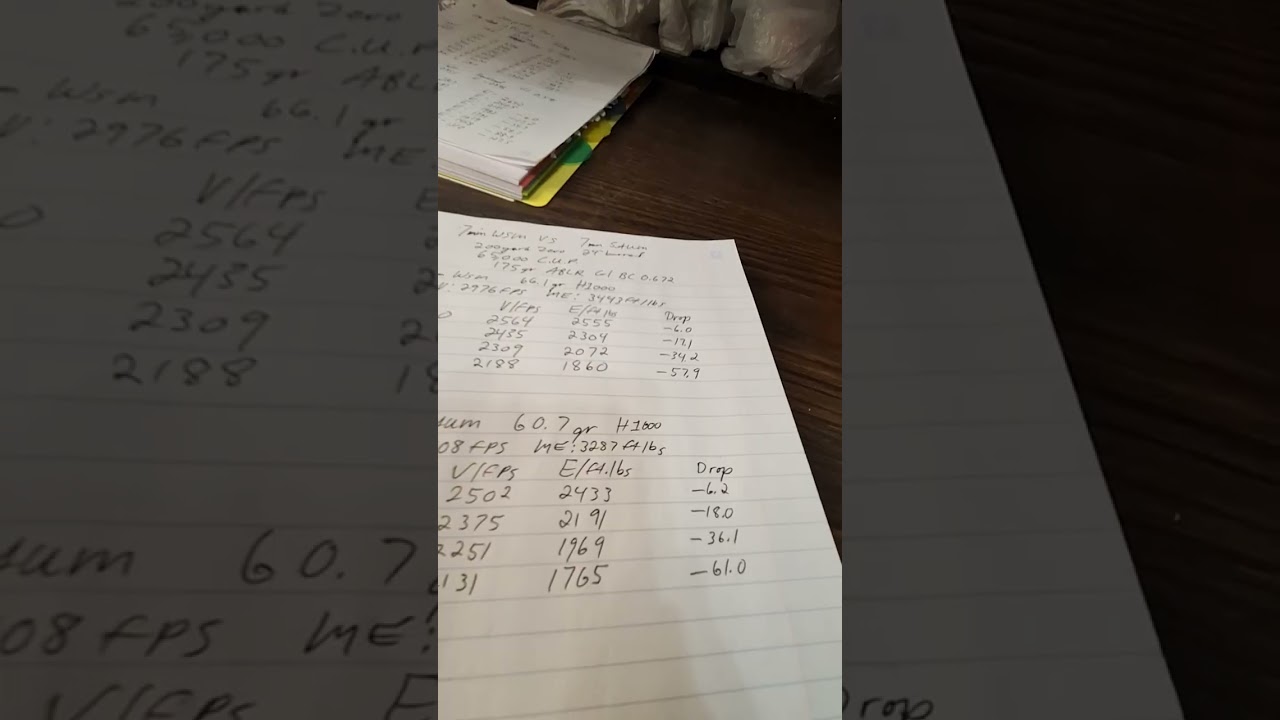 7mm WSM VS 7mm SAUM
200 yard Zero 24" barrel
65,000 C.U.P.
175gr ABLR G1 BC 0.672
- WSM 66.1gr H1000
V: 2976 FPS ME: 3443 ft/lbs
V/FPS E/ft lbs Drop
2564 2555 -6.0
2435 2304 -17.1
2309 2072 -34.2
2188 1860 -57.9
aum 60.7gr H1000
08 FPS ME: 3287 ft lbs
V/FPS E/ft.lbs Drop
2502 2433 -6.2
2375 2191 -18.0
2251 1969 -36.1
131 1765 -61.0